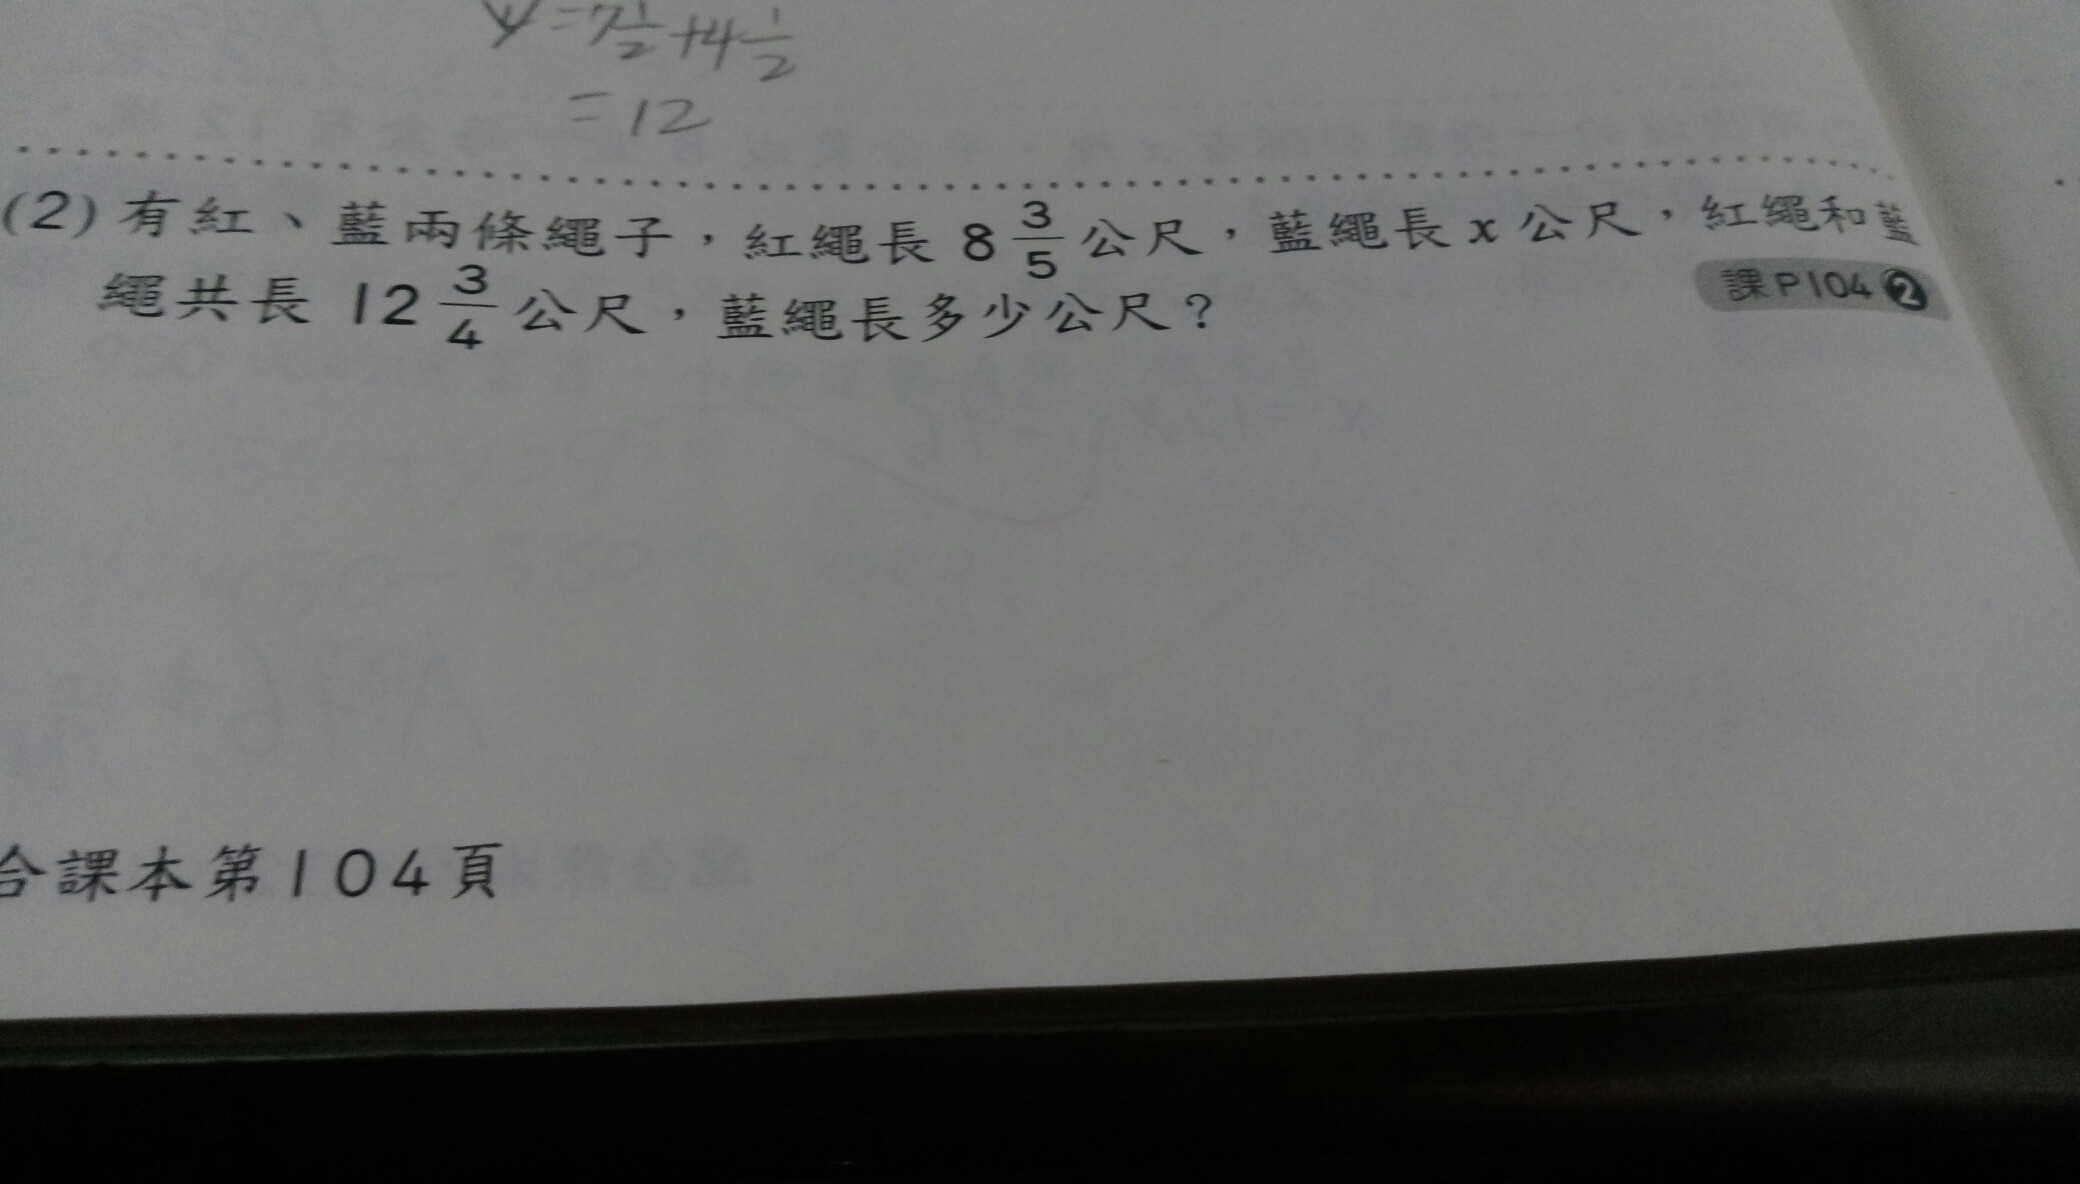 y=7 1/2+4 1/2
=12
(2) 有紅、藍兩條繩子，紅繩長 8 3/5 公尺，藍繩長 x 公尺，紅繩和藍
繩共長 12 3/4 公尺，藍繩長多少公尺？
課P104 ❷
合課本第104頁